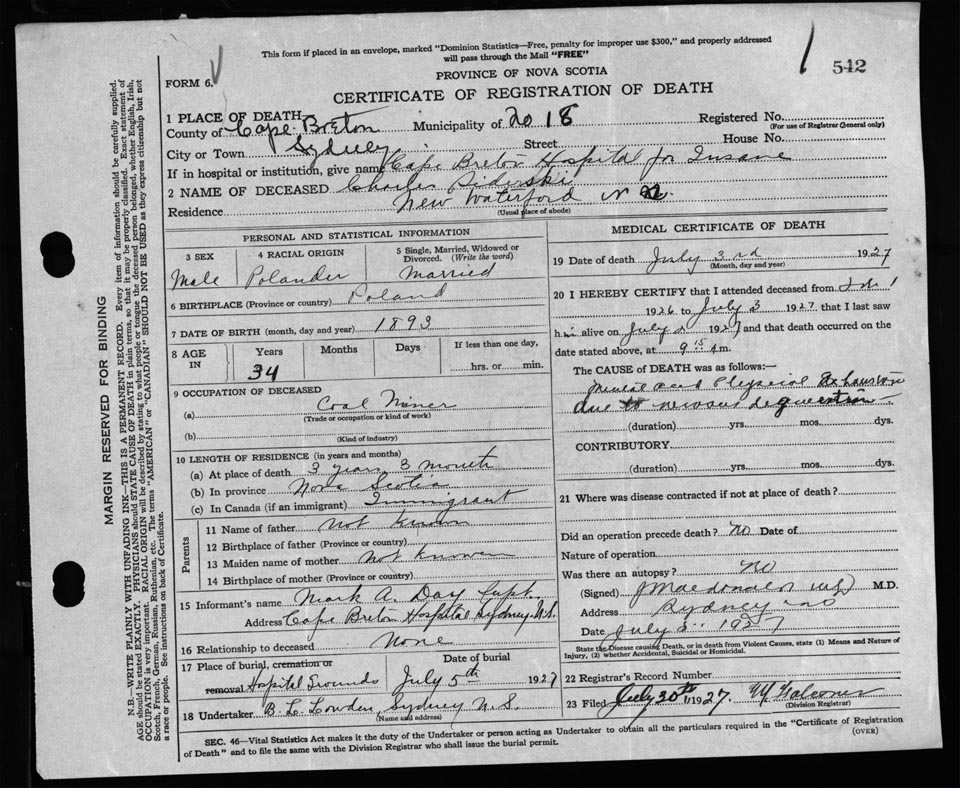 This form if placed in an envelope, marked "Dominion Statistics—Free, penalty for improper use $300," and properly addressed
will pass through the Mail "FREE"
1 542
FORM 6. PROVINCE OF NOVA SCOTIA
CERTIFICATE OF REGISTRATION OF DEATH
1 PLACE OF DEATH
County of Cape Breton Municipality of No 18 Registered No.
(For use of Registrar General only)
City or Town Sydney Street House No.
If in hospital or institution, give name Cape Breton Hospital for Insane
2 NAME OF DECEASED Charles Piderski
Residence New Waterford N S.
(Usual place of abode)
PERSONAL AND STATISTICAL INFORMATION
3 SEX 4 RACIAL ORIGIN 5 Single, Married, Widowed or Divorced. (Write the word)
Male Polander Married
6 BIRTHPLACE (Province or country) Poland
7 DATE OF BIRTH (month, day and year) 1893
8 AGE IN Years Months Days If less than one day,
34 hrs. or min.
9 OCCUPATION OF DECEASED
(a) Coal Miner
(Trade or occupation or kind of work)
(b)
(Kind of industry)
10 LENGTH OF RESIDENCE (in years and months)
(a) At place of death 3 years, 3 month
(b) In province Nova Scotia
(c) In Canada (if an immigrant) Immigrant
Parents
11 Name of father Not Known
12 Birthplace of father (Province or country)
13 Maiden name of mother Not Known
14 Birthplace of mother (Province or country)
15 Informant's name Mark A. Day Supt.
Address Cape Breton Hospital Sydney N.S.
16 Relationship to deceased None
17 Place of burial, cremation or removal Hospital Grounds Date of burial July 5th 1927
18 Undertaker B. L. Lowden, Sydney N. S.
(Name and address)
MEDICAL CERTIFICATE OF DEATH
19 Date of death July 3rd 1927
(Month, day and year)
20 I HEREBY CERTIFY that I attended deceased from 1
1926 to July 3 1927 that I last saw
him alive on July 2 1927 and that death occurred on the
date stated above, at 9 15 A m.
The CAUSE OF DEATH was as follows:—
Mental and Physical Exhaustion
due to nervous degeneration
(duration) yrs. mos. dys.
CONTRIBUTORY
(duration) yrs. mos. dys.
21 Where was disease contracted if not at place of death?
Did an operation precede death? No Date of
Nature of operation
Was there an autopsy? No
(Signed) J Macdonald M.D. M.D.
Address Sydney N S
Date July 3 1927
State the Disease causing Death, or in death from Violent Causes, state (1) Means and Nature of
Injury, (2) whether Accidental, Suicidal or Homicidal.
22 Registrar's Record Number
23 Filed July 20th 1927. Falconer
(Division Registrar)
SEC. 46—Vital Statistics Act makes it the duty of the Undertaker or person acting as Undertaker to obtain all the particulars required in the "Certificate of Registration
of Death" and to file the same with the Division Registrar who shall issue the burial permit.
(OVER)
MARGIN RESERVED FOR BINDING
N.B.—WRITE PLAINLY WITH UNFADING INK—THIS IS A PERMANENT RECORD. Every item of information should be carefully supplied.
AGE should be stated EXACTLY. PHYSICIANS should STATE CAUSE OF DEATH in plain terms, so that it may be properly classified. Exact statement of
OCCUPATION is very important. RACIAL ORIGIN will be described by stating to what people or tongue the deceased person belonged, whether English, Irish,
Scotch, French, German, Russian, Ruthenian, etc. The terms "AMERICAN" or "CANADIAN" SHOULD NOT BE USED as they express citizenship but not
a race or people. See instructions on back of Certificate.